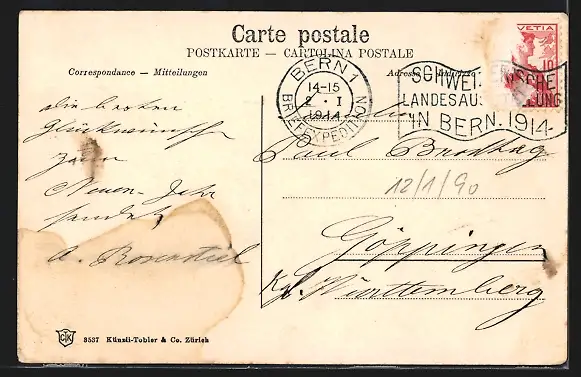 Carte postale
POSTKARTE — CARTOLINA POSTALE
Correspondance — Mitteilungen
HELVETIA
10
BERN 1
14-15
2 · I
1914
BRIEFEXPEDITION
SCHWEIZ
LANDESAUS LUNG
IN BERN. 1914
die besten
Glückwünsche
zum
Neuen-Jahr
sendet
A. Rosenthal
Paul
12/1/90
Göppingen
Kgr. Württemberg
CK 8537 Künzli-Tobler & Co. Zürich